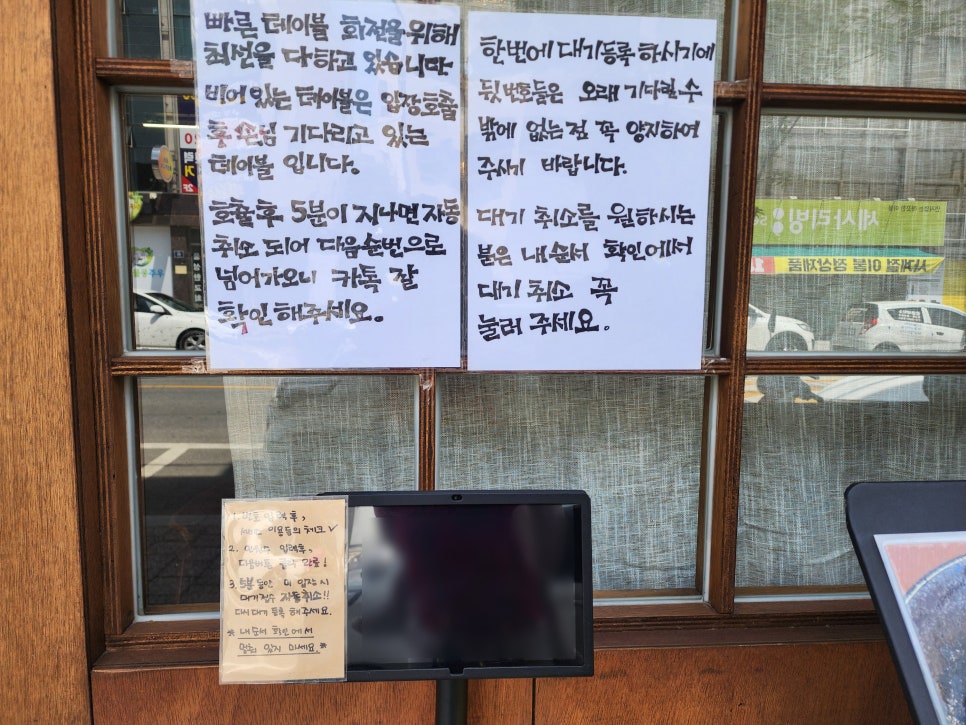 빠른 테이블 회전을 위해
최선을 다하고 있습니다.
비어 있는 테이블은 입장호출
후 손님 기다리고 있는
테이블 입니다.
호출 후 5분이 지나면 자동
취소 되어 다음순번으로
넘어가오니 카톡 잘
확인해주세요.
한번에 대기등록 하시기에
뒷 번호들은 오래 기다릴 수
밖에 없는점 꼭 양지하여
주시기 바랍니다.
대기 취소를 원하시는
분은 내순서 확인에서
대기 취소 꼭
눌러 주세요.
1. 번호 입력 후,
이용동의 체크 ✓
2. 인원수 입력후,
3. 5분 동안 미 입장 시
대기접수 자동취소!!
다시 대기 등록 해주세요.
* 내 순서 확인에서
있지 마세요. *
세사리빙
사계절 이불 정상제품